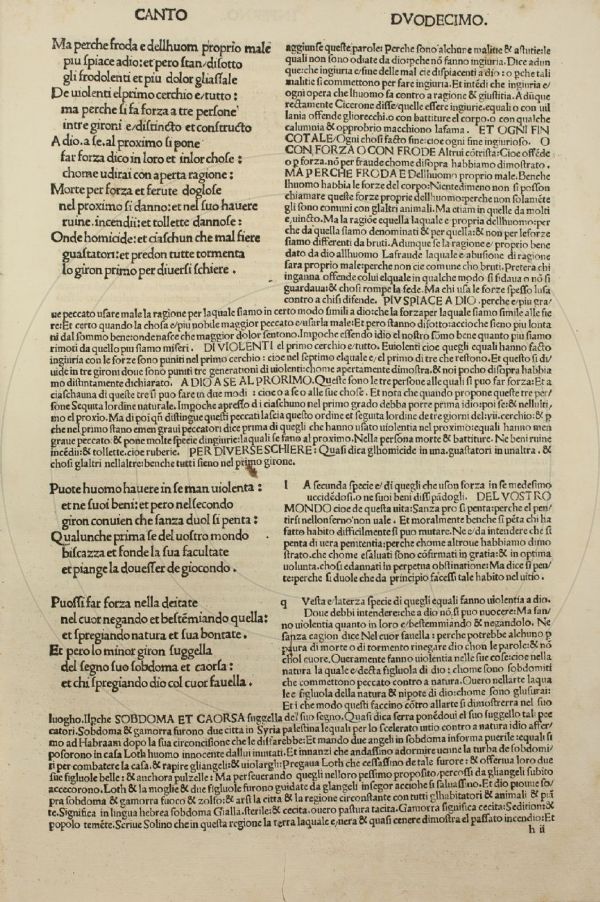 CANTO
DVODECIMO.
Ma perche froda e dellhuom proprio male
piu spiace adio: et pero stan/ disotto
gli frodolenti et piu dolor gliassale
De uiolenti elprimo cerchio e/tutto:
ma perche si fa forza a tre persone
intre gironi e/distincto et constructo
A dio. a se. al proximo si pone
far forza dico in loro et inlor chose:
chome udirai con aperta ragione:
Morte per forza et ferute doglose
nel proximo si danno: et nel suo hauere
ruine. incendii: et tollette dannose:
Onde homicide: et ciaschun che mal fiere
guastatori: et predon tutte tormenta
lo giron primo per diuersi schiere.
aggiunse queste parole: Perche sono alchune malitie & astutie: le
quali non sono odiate da dio: pche nõ fanno ingiuria. Dice adun
que: che ingiuria e/fine delle mal cie dispiacenti a dio: o pche tali
malitie si commettono per fare ingiuria. Et intẽdi che ingiuria e/
ogni opera che lhuomo fa contro a ragione & giustitia. Adũque
rectamente Cicerone disse/quelle essere ingiurie. equali o con uil
lania offende gliorecchi. o con battiture el corpo. o con qualche
calumnia & opprobrio macchiono lafama. ET OGNI FIN
COTALE/Ogni chosi facto fine: cioe ogni fine ingiurioso. O
CON FORZA O CON FRODE Altrui cõtrista: Cioe offẽde
o p forza. nõ per fraude chome disopra habbiamo dimostrato.
MA PERCHE FRODA E Dellhuomo proprio male. Benche
lhuomo habbia le forze del corpo: Nientedimeno non si posson
chiamare queste forze proprie dellhuomo: perche non solamẽte
gli sono comuni con glaltri animali. Ma etiam in quelle da molti
e, uincto. Ma la ragiõe equella laquale e propria dellhuomo: per
che da quella siamo denominati & per quella: & non per leforze
siamo differenti da bruti. Adunque se la ragione e/proprio bene
dato da dio allhuomo Lafraude laquale e/abusione di ragione
sara proprio male: perche non cie comune cho bruti. Pretera chi
inganna offende colui elquale in qualche modo si fidaua o nõ si
guardaua: & chosi rompe la fede. Ma chi usa le forze spesso lusa
contro a chi si difende. PIV SPIACE A DIO. perche e/piu gra/
ue peccato usare male la ragione per laquale siamo in certo modo simili a dio: che la forza per laquale siamo simile alle fie
re: Et certo quando la chosa e/piu nobile maggior peccato e/usarla male: Et pero stanno disotto: accioche sieno piu lonta
ni dal sommo bene: onde nasce che maggior dolor sentono. Impoche essendo idio el nostro sõmo bene quanto piu siamo
rimoti da quello piu siamo miseri. DI VIOLENTI el primo cerchio E/tutto. Euiolenti cioe quegli equali hanno facto
ingiuria con le forze sono puniti nel primo cerchio: cioe nel septimo elquale e/ el primo di tre che restono. Et questo si di/
uide in tre gironi doue sono puniti tre generationi di uiolenti: chome apertamente dimostra: & noi pocho disopra habbia
mo distintamente dichiarato. A DIO A SE AL PRORIMO. Queste sono le tre persone alle quali si puo far forza: Et a
ciaschauna di queste tre si puo fare in due modi: cioe o a se o alle sue chose. Et nota che quando propone queste tre per/
sone Sequita lordine naturale. Impoche apresso di ciaschuno nel primo grado debba porre prima idio: poi se: & nellulti,
mo el proxio. Ma dipoi q̃ distingue questi peccati lascia questo ordine et seguita lordine de tre giorni del. vii. cerchio: & p
che nel primo stano emen graui peccatori dice prima di quegli che hanno usato uiolentia nel proximo: equali hanno men
graue peccato: & pone molte specie dingiurie: laquali se fano al proximo. Nella persona morte & battiture. Ne beni ruine
incẽdii: & tollette. cioe ruberie. PER DIVERSE SCHIERE: Quasi dica glhomicide in una. guastatori in unaltra. &
chosi glaltri nellaltre: benche tutti sieno nel primo girone.
Puote huomo hauere in se man uiolenta:
et ne suoi beni: et pero nelsecondo
giron conuien che sanza duol si penta:
Qualunche prima se del uostro mondo
biscazza et fonde la sua facultate
et piange la doue esser de giocondo.
l A secunda specie e/ di quegli che uson forza in se medesimo
uccidẽdosi. o ne suoi beni dissipãdogli. DEL VOSTRO
MONDO cioe de questa uita: Sanza pro si penta: perche el pen/
tirsi nellonferno nõn uale. Et moralmente benche si pẽta chi ha
facto habito difficilmente si puo mutare. Ne e/da intendere che si
penta di uera penitentia: perche chome altroue habbiamo dimo
strato. che chome esaluati sono cõfirmati in gratia: & in optima
uolunta. chosi edannati in perpetua obstinatione: Ma dice si pen/
te: perche si duole che da principio facessi tale habito nel uitio.
Puossi far forza nella deitate
nel cuor negando et bestẽmiando quella:
et spregiando natura et sua bontate.
Et pero lo minor giron suggella
del segno suo sobdoma et caorsa:
et chi spregiando dio col cuor fauella.
q Vesta e/laterza specie di quegli equali fanno uiolentia a dio.
Doue debbi intendere: che a dio nõ si puo nuocere: Ma fan/
no uiolentia quanto in loro e/bestemmiando & negandolo. Ne
sanza cagion dice Nel cuor fauella: perche potrebbe alchuno p
paura di morte o di tormento rinegare dio chon le parole: & nõ
chol cuore. Oueramente fanno uiolentia nelle sue cose: cioe nella
natura la quale e/decta figluola di dio: chome sono sobdomiti
che commettono peccato contro a natura. Ouero nellarte laqua
le e figluola della natura & nipote di dio: chome sono glusurai:
Et i che modo questi faccino cõtro allarte si dimosterra nel suo
luogho. Ilpche SOBDOMA ET CAORSA suggella del suo segno. Quasi dica serra ponẽdoui el suo suggello tal: pec
catori. Sobdoma & gamorra furono due citta in Syria palestina lequali per lo scelerato uitio contro a natura idio affer/
mo ad Habraam dopo la sua circoncisione che le disfarebbe: Et mando due angeli in sobdoma informa puerile: equali si
posorono in casa Loth huomo innocente dallui inuitati. Et innanzi che andassino adormire uenne la turba de sobdomi/
ti per combatere la casa. & rapire gliangeli: & uiolargli: Pregaua Loth che cessassino de tale furore: & offeriua loro due
sue figluole belle: & anchora pulzelle: Ma perseuerando quegli nelloro pessimo proposito, percossi da gliangeli subito
accecorono. Loth & la moglie & due figluole furono guidate da glangeli insegor acioche si saluassino. Et dio piouue so/
pra sobdoma & gamorra fuoco & zolfo: & arsi la citta & la regione circonstante con tutti glhabitatori & animali & piã
te. Significa in lingua hebrea sobdoma Gialla. sterile: & cecita. ouero pastura tacita. Gamorra significa cecita: Sedition: &
popolo temẽte. Scriue Solino che in questa regione la terra laquale e/nera & quasi cenere dimostra el passato incendio: Et
h ii